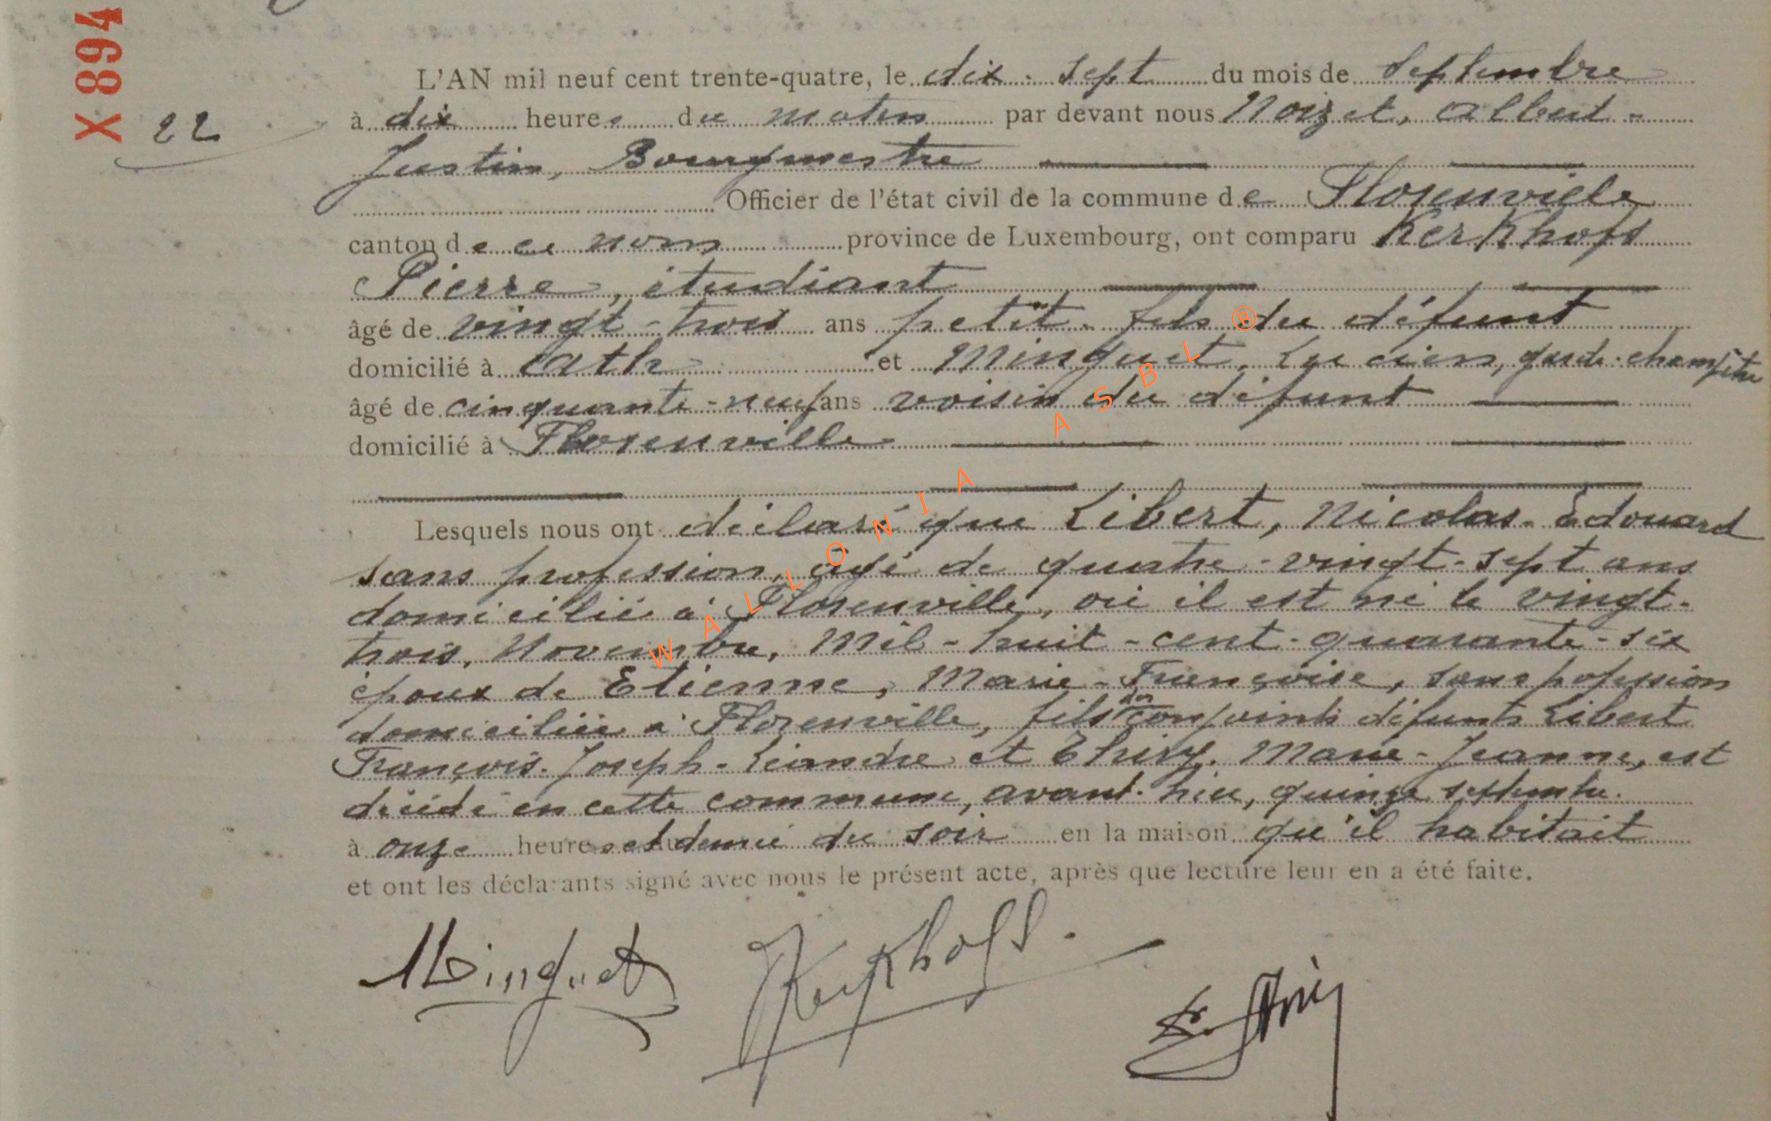 X 894
22
L'AN mil neuf cent trente-quatre, le dix-sept du mois de Septembre
à dix heures du matin par devant nous Noizet, Albert-
Justin, Bourgmestre
Officier de l'état civil de la commune de Florenville
canton de ce nom province de Luxembourg, ont comparu Kerkhofs
Pierre, étudiant
âgé de vingt-trois ans petit-fils du défunt
domicilié à Ath et Minguet, Lucien, garde-champêtre
âgé de cinquante-neuf ans voisin du défunt
domicilié à Florenville
Lesquels nous ont déclaré que Libert, Nicolas-Edouard
sans profession, âgé de quatre-vingt-sept ans
domicilié à Florenville, où il est né le vingt-
trois, Novembre, Mil-huit-cent-quarante-six
époux de Etienne, Marie-Françoise, sans profession
domiciliée à Florenville, fils des conjoints défunts Libert
François-Joseph-Léandre et Thiry, Marie-Jeanne, est
décédé en cette commune, avant-hier, quinze septembre
à onze heures et demie du soir en la maison qu'il habitait
et ont les déclarants signé avec nous le présent acte, après que lecture leur en a été faite.
Minguet Kerkhofs.
WALLONIA ASBL ®